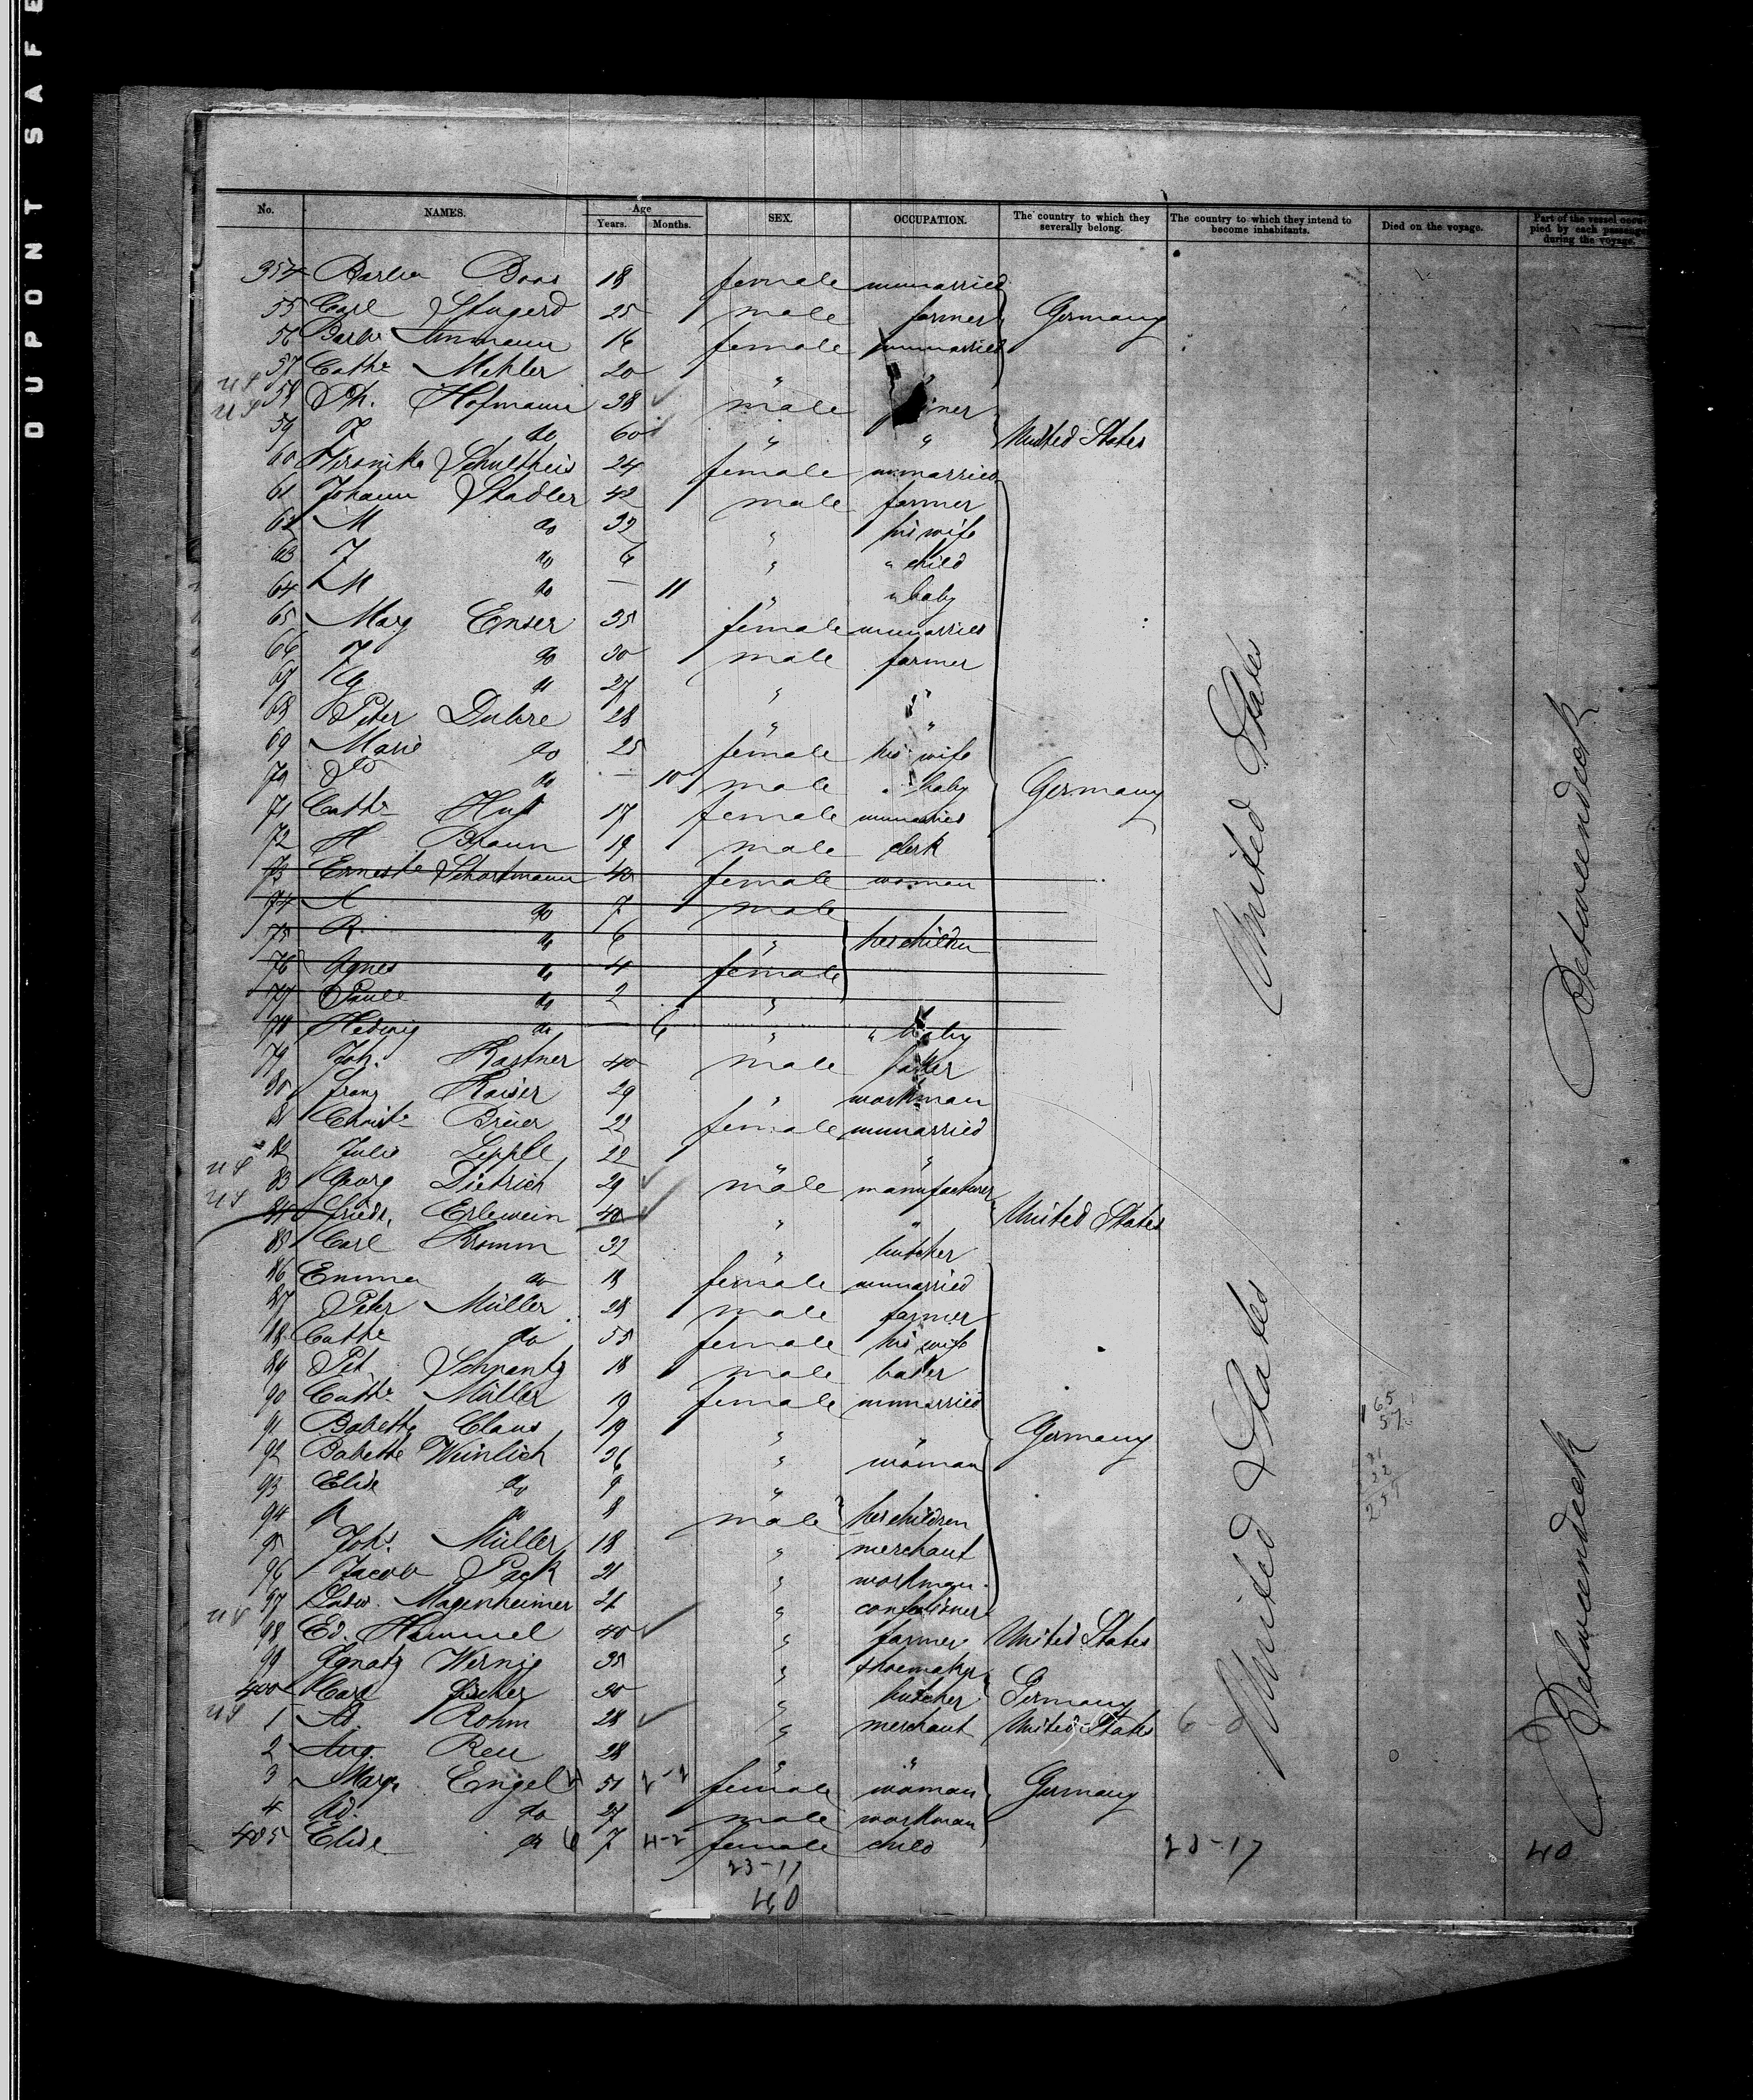 DUPONT SAFE
No. NAMES. Age Years. Months. SEX. OCCUPATION. The country to which they severally belong. The country to which they intend to become inhabitants. Died on the voyage. Part of the vessel occupied by each passenger during the voyage.
354 Barba Boos 18 female unmarried
55 Carl 25 male farmer Germany
56 Barba Ammann 16 female unmarried
57 Cathe Mehler 20 " "
US 58 Ph. Hofmann 38 male
US 59 F do 60 " " United States
60 Veronika Schultheis 24 female unmarried
61 Johann Stadler 42 male farmer
62 M do 32 " his wife
63 F do 6 " " child
64 M do — 11 " " baby
65 Marg Enser 35 female unmarried
66 F do 30 male farmer
67 G do 27 " "
68 Peter Duhre 28 " "
69 Marie do 25 female his wife
70 do — 10 male " baby Germany
71 Cathe 17 female unmarried
72 H Braun 19 male clerk
73 Erneste Schortmann 40 female woman
74 X do 7 male
75 R. do 6 " her children
76 Agnes do 4 female
77 Paule do 2 "
78 Hedwig do — 6 " " baby
79 Joh. Kastner 40 male baker
80 Franz Kaiser 29 " workman
81 Christe Breier 22 female unmarried
82 Julie Lepple 22 "
US 83 Georg Dietrich 29 male manufacturer
US 84 Friedr. Erlewein 40 " " United States
85 Carl Kromm 32 " butcher
86 Emma do 18 female unmarried
87 Peter Müller 28 male farmer
88 Cathe do 55 female his wife
89 Pet. Schrantz 18 male baker
90 Cathe Müller 19 female unmarried
91 Babette Claus 19 " " Germany
92 Babette Weinlich 36 " woman
93 Elise do 9 "
94 do 8 male her children
95 Johs. Müller 18 " merchant
96 Jacob Pack 21 " workman
97 Ludw. Magenheimer 21 " confectioner
US 98 Ed. Hammel 40 " farmer United States
99 Ignatz Wernig 35 " shoemaker
400 Carl Fischer 30 " butcher Germany
US 1 Ad. Rohm 28 " merchant United States 6-0
2 Aug. Reu 28 " "
3 Marg. Engel 51 2-2 female woman Germany
4 Ad. do 27 male workman
405 Elise do 6 7 4-2 female child 23-17 40
23-17
40
United States
United States
Betweendeck
Betweendeck
165
57